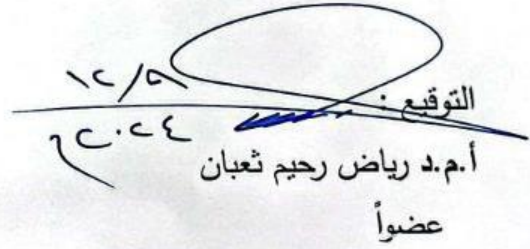 التوقيع :
٢٠٢٤
أ.م.د رياض رحيم ثعبان
عضواً